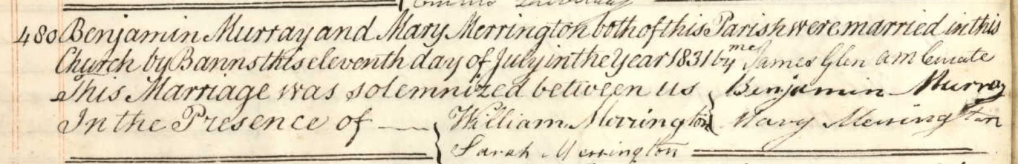 480 Benjamin Murray and Mary Merrington both of this Parish were married in this
Church by Banns this eleventh day of July in the Year 1831 by me James Glen Curate
This Marriage was solemnized between us Benjamin Murray
In the Presence of William Merrington Mary Merrington
Sarah Merrington